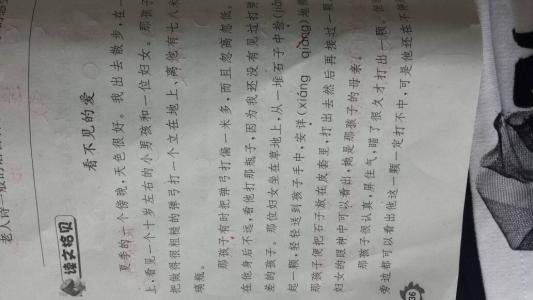 老人诗一般的语言
语文拾贝
看不见的爱
夏季的一个傍晚，天色很好。我出去散步，在一
上，看见一个十岁左右的小男孩和一位妇女。那孩子
把做得很粗糙的弹弓打一个立在地上、离他有七八米
璃瓶。
那孩子有时把弹弓打偏一米多，而且忽高忽低。
在他身后不远，看他打那瓶子，因为我还没有见过打弹
差的孩子。那位妇女坐在草地上，从一堆石子中捡(jiǎn
起一颗，轻轻送到孩子手中，安详(xiáng qiáng)地微
那孩子便把石子放在皮套里，打出去，然后再接过一颗
妇女的眼神中可以看出，她是那孩子的母亲。
那孩子很认真，屏住气，瞄了很久才打出一颗。但
旁边都可以看出他这一颗一定打不中，可是他还在不停
36